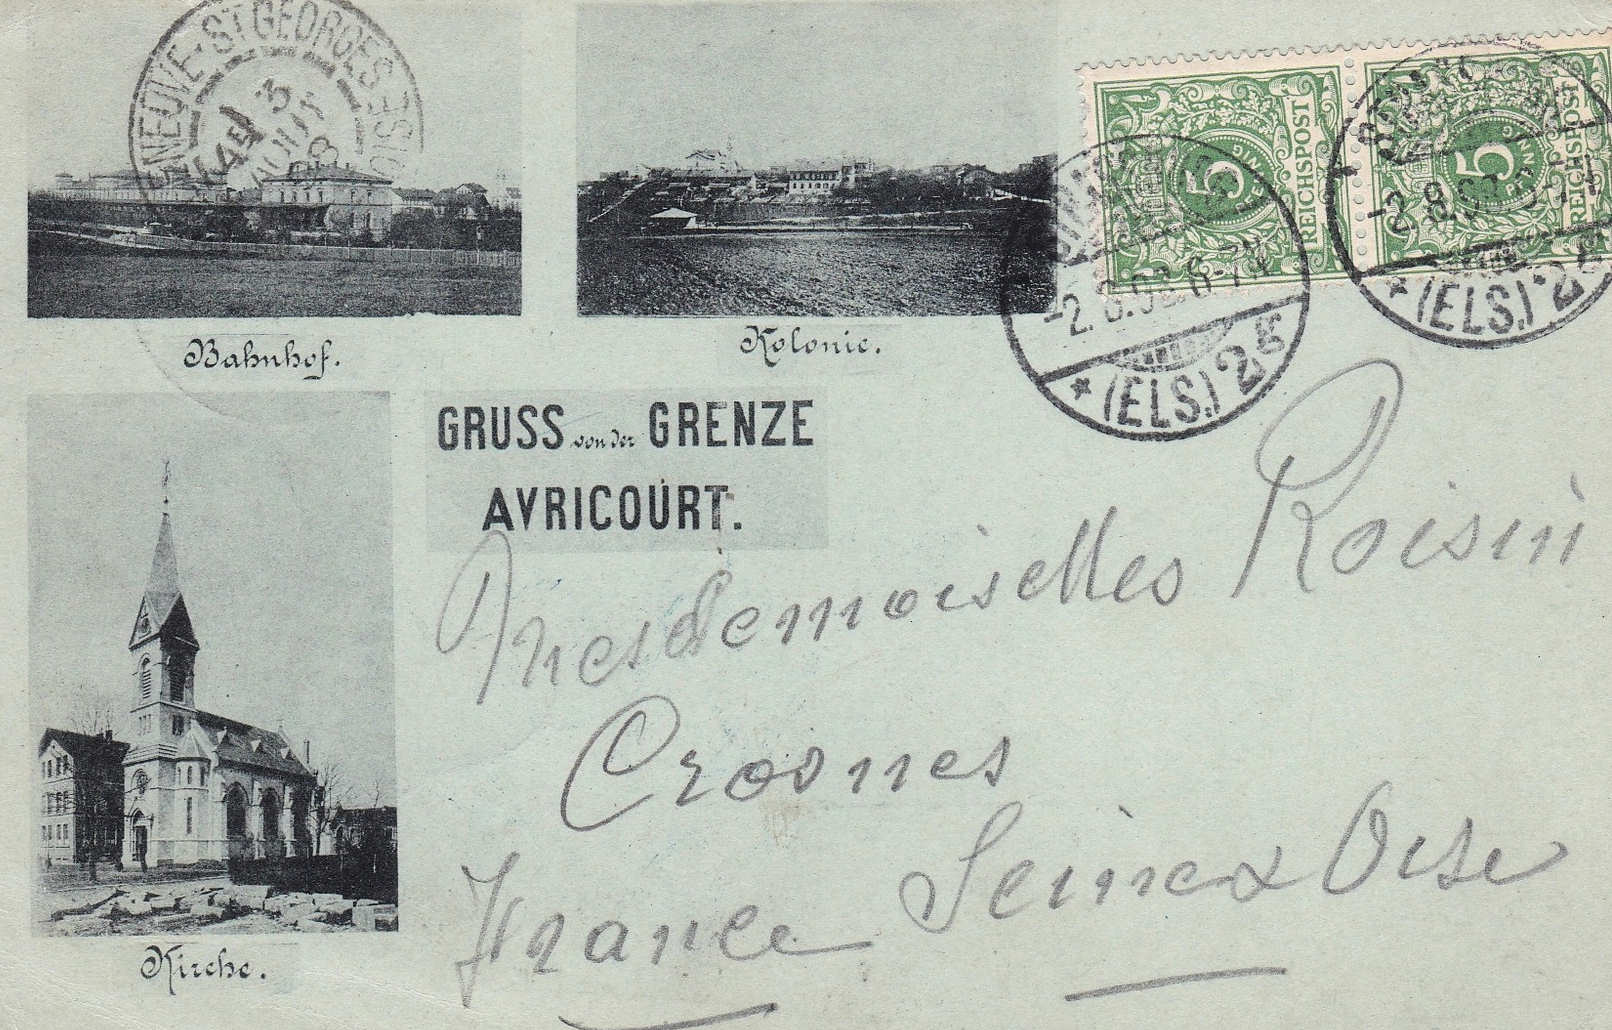 NEUVE-ST GEORGES
3
AOUT
Bahnhof.
Kolonie.
5
REICHSPOST
5
REICHSPOST
(ELS.)
(ELS.)
GRUSS von der GRENZE
AVRICOURT.
Mesdemoiselles Roisin
Crosnes
Seine & Oise
France
Kirche.